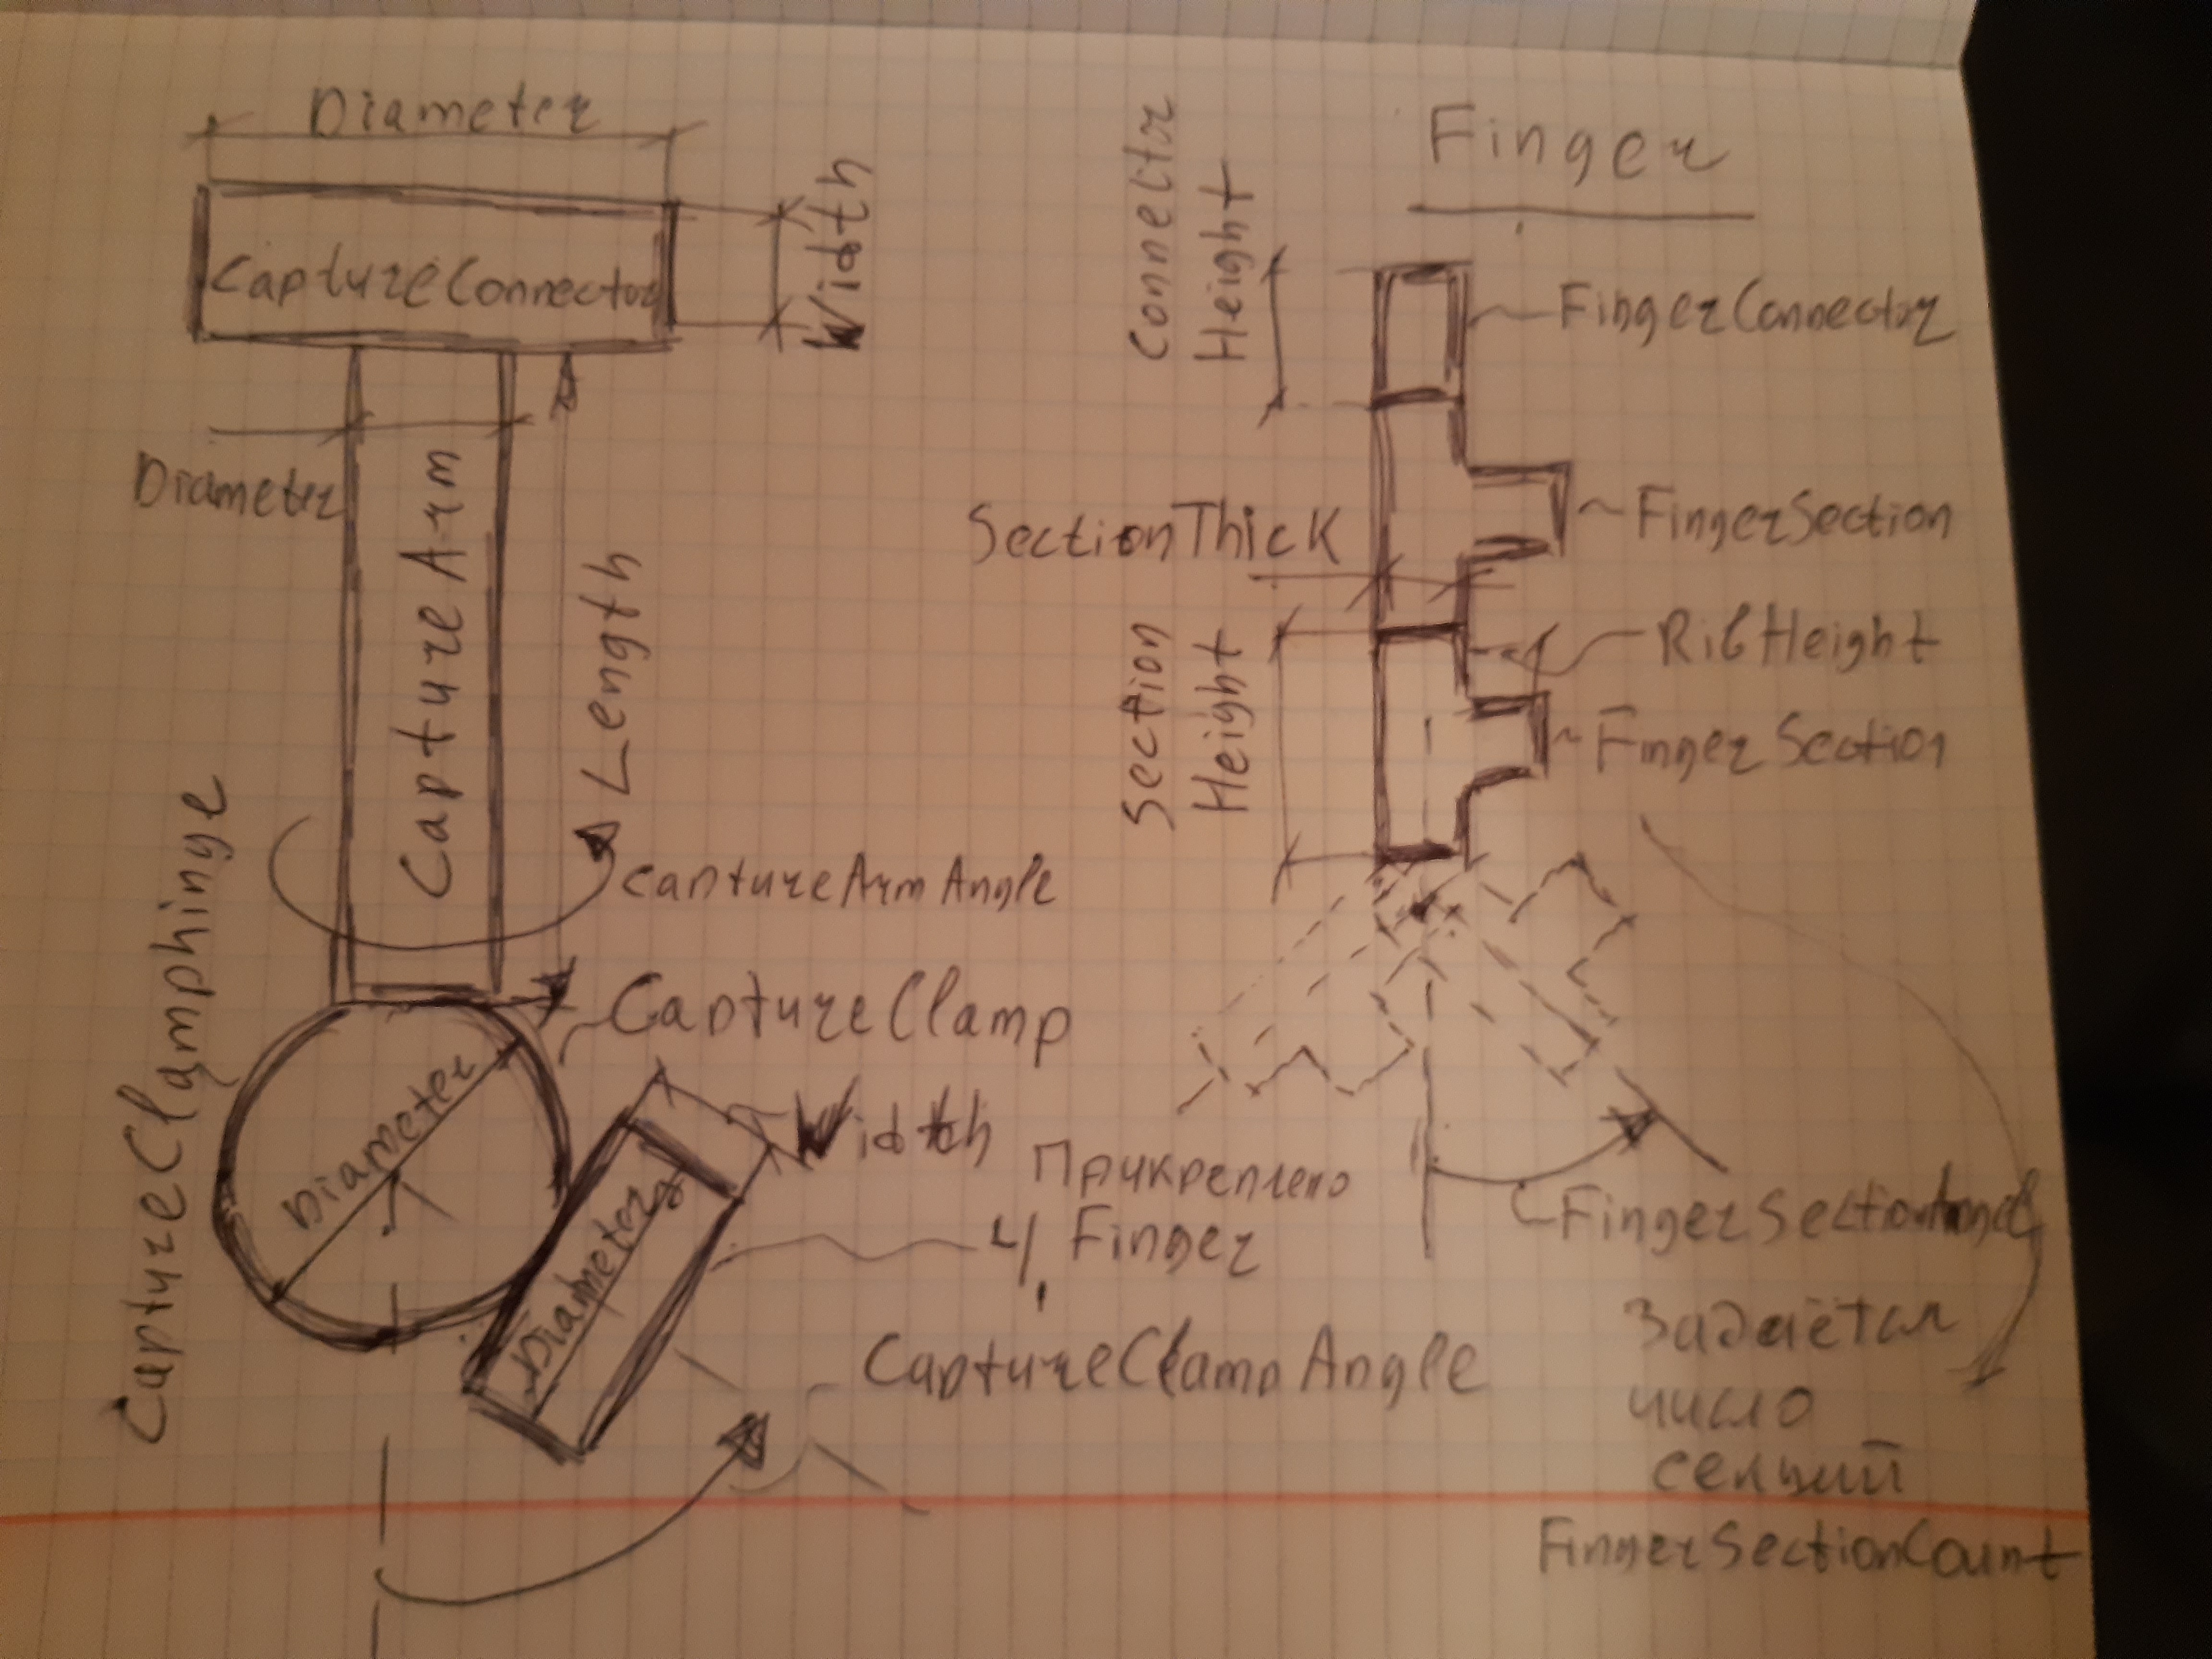 Diameter
Width
CaptureConnector
Diameter
Capture Arm
Length
captureArmAngle
CaptureClamphinge
CaptureClamp
Diameter
Width
Diameter
Прикреплено
4 Finger
CaptureClampAngle
Finger
Connector
Height
FingerConnector
FingerSection
SectionThick
RibHeight
Section
Height
FingerSection
Задаётся
число
секций
FingerSectionCount